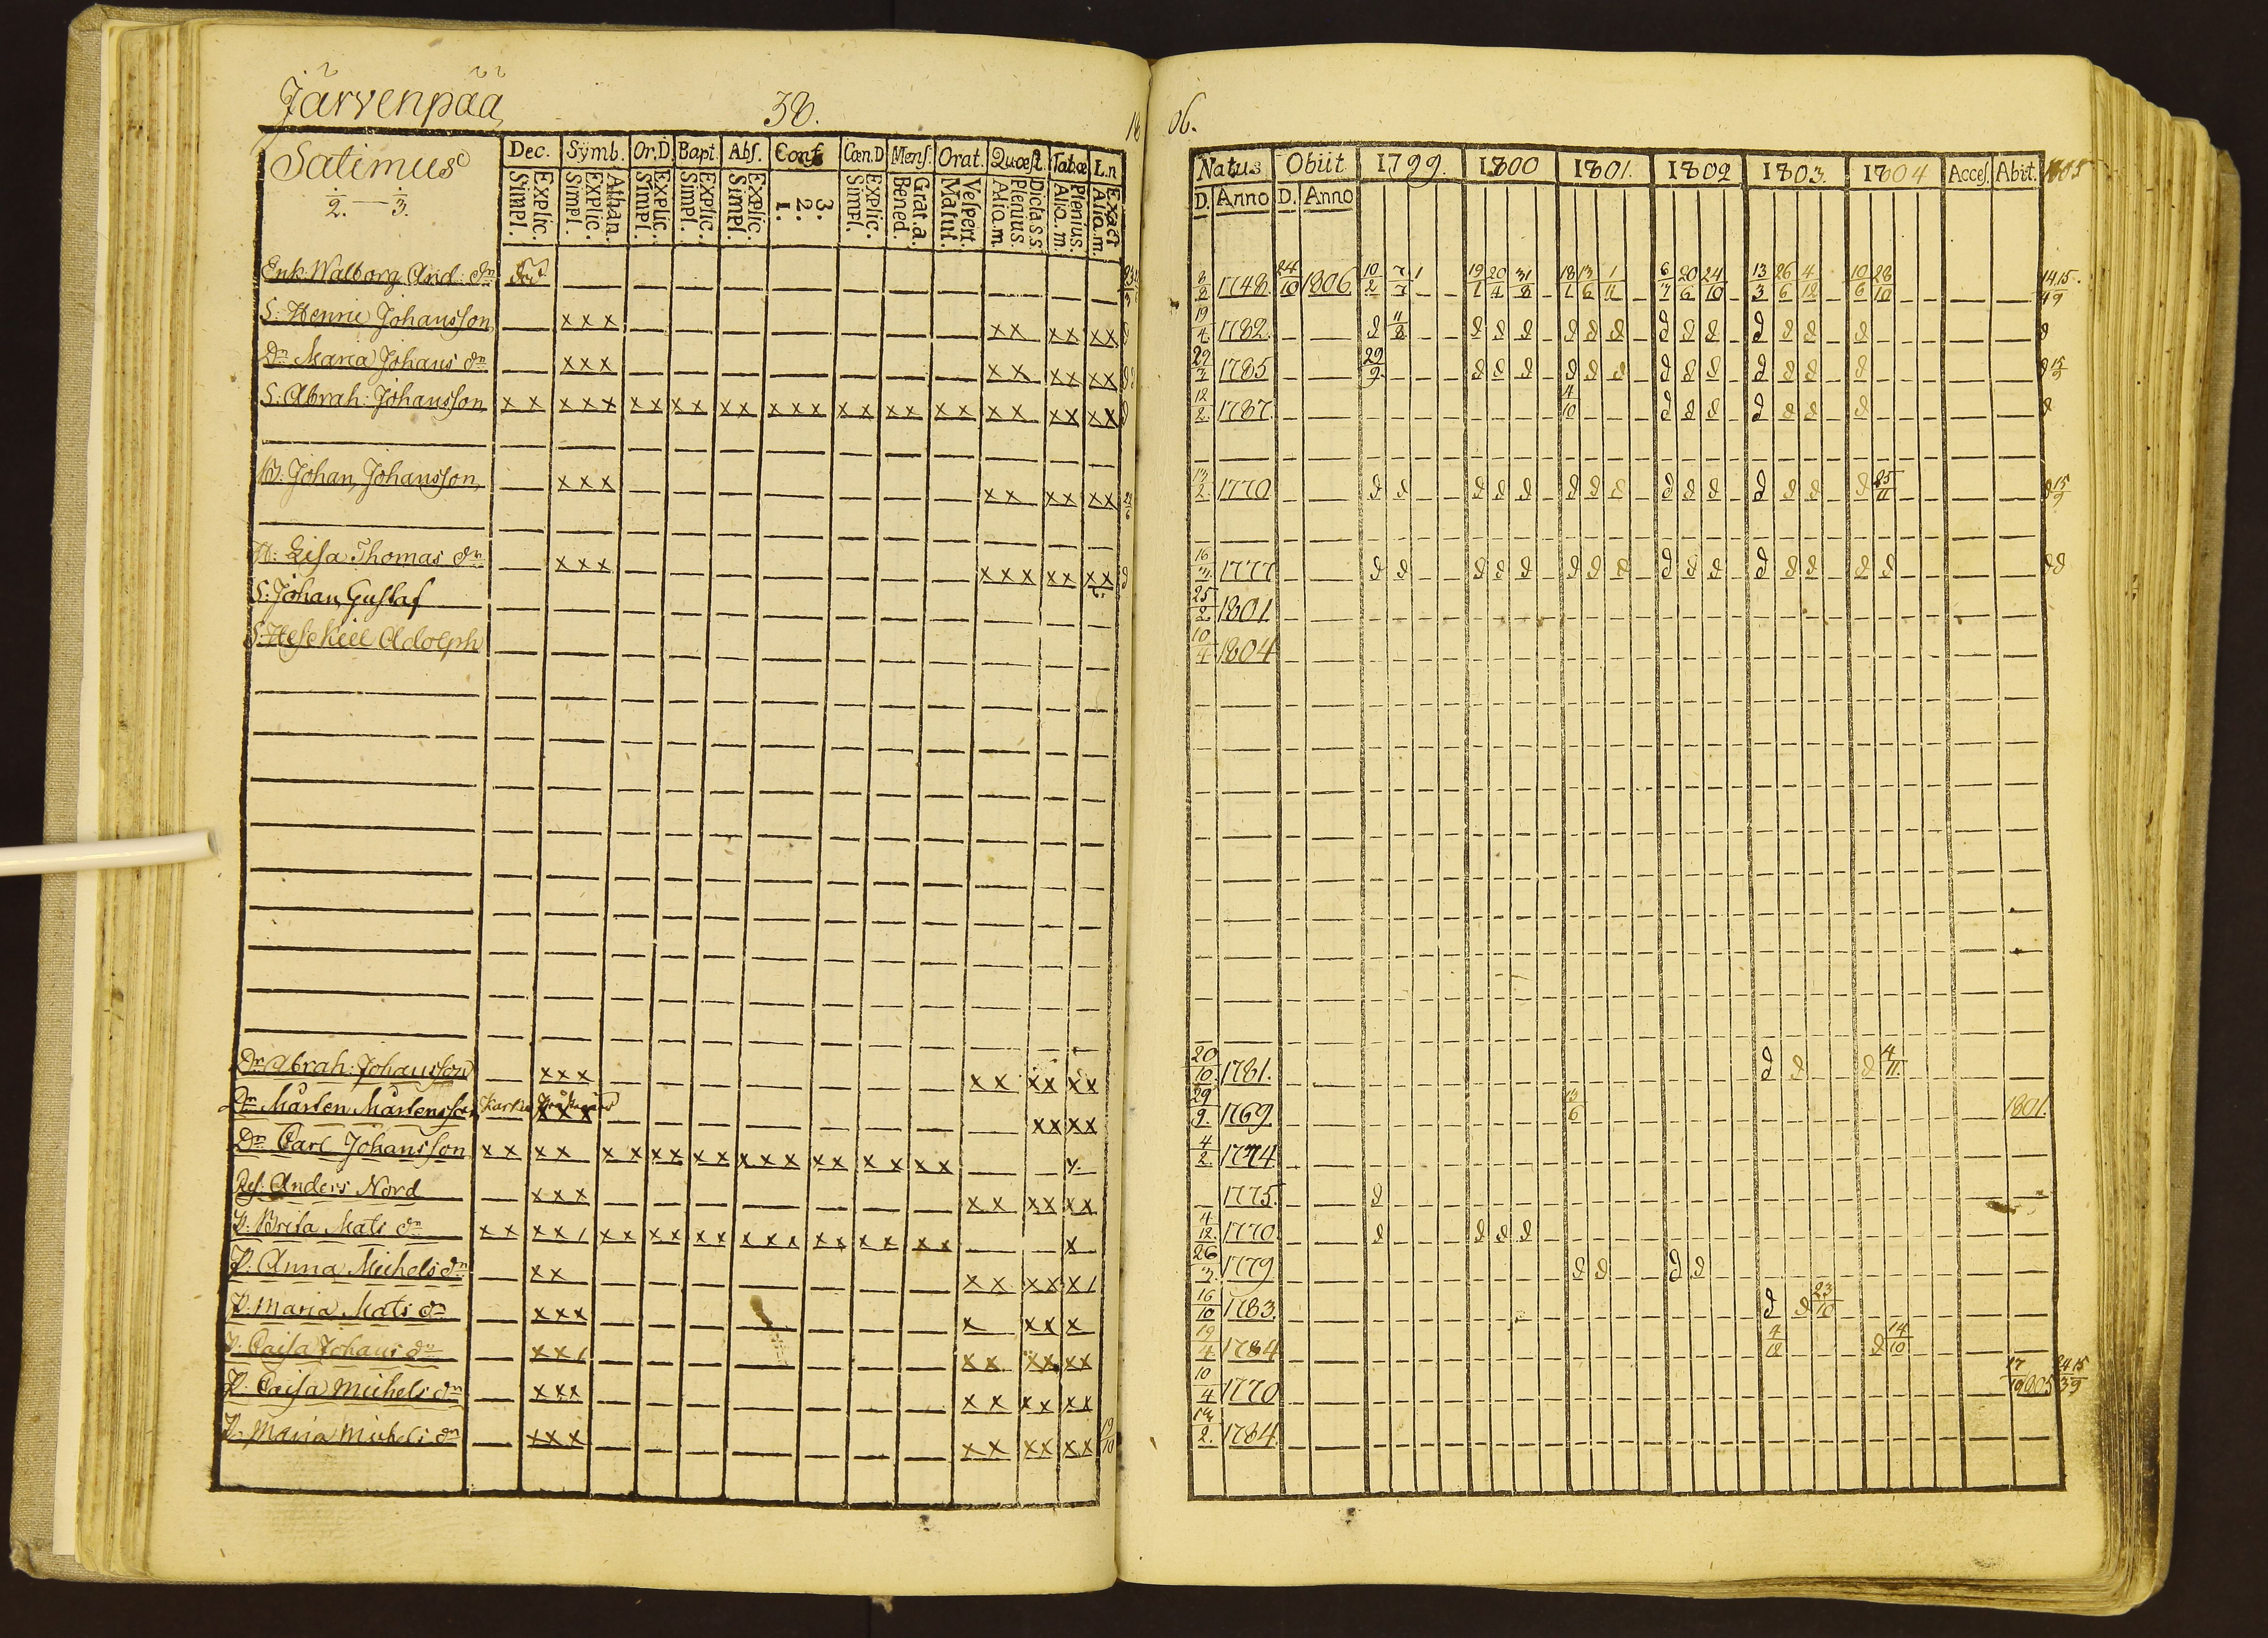 Järvenpää
38.
Satimus
2. — 3.
Dec. Symb. Or.D. Bapt. Abs. Conf. Cœn.D Mens. Orat. Quæst. Tab.œ L.n
Explic. Simpl. Athan. Explic. Simpl. Explic. Simpl. Explic. Simpl. Explic. Simpl. 3. 2. 1. Explic. Simpl. Grat.a. Bened. Vespert. Matut. Dicta s.s. Plenius. Alio.m. Plenius. Alio.m. Exact Alio.m.
Enk. Walborg And: dr
S. Henric Johansson xxx xx xx xx
Dr. Maria Johans dr xxx xx xx xx
S. Abrah: Johansson xx xxx xx xx xx xxx xx xx xx xx xx xx
B. Johan Johansson xxx xx xx xx
H: Lisa Thomas dr xxx xxx xx xx
S. Johan Gustaf
S. Hesekiel Adolph
Dr. Abrah: Johansson xxx xx xx xx
Dr. Mårten Mårtensson xxx xx xx
Dr. Carl Johansson xx xx xx xx xx xxx xx xx xx
Anders Nord xxx xx xx xx
P. Brita Mats dr xx xx/ xx xx xx xxx xx xx xx x
P. Anna Michels dr xx xx xx x/
P. Maria Mats dr xxx x xx x
P. Caisa Johans dr xx/ xx xx xx
P. Caisa Michels dr xxx xx xx xx
P. Maria Michels dr xxx xx xx xx 19/10
06.
Natus Obiit 1799. 1800 1801. 1802 1803. 1804 Acces. Abit. 1805
D. Anno D. Anno
1748. 24/10 1806 10/2 7/7 19/1 20/4 31/8 18/1 13/6 1/11 6/7 20/6 24/10 13/3 26/6 4/12 10/6 28/10 14/4 15/9
19/4 1782. d 11/8 d d d d d d d d d d d d d d
29/3 1785 29/9 d d d d d d d d d d d d d d 15/9
12/2 1787. 4/10 d d d d d d d d
13/2 1770 d d d d d d d d d d d d d d d 25/11 d 15/9
16/3 1777 d d d d d d d d d d d d d d d d d d
25/2 1801.
10/4 1804
20/10 1781. d d d 4/11
29/9 1769. 13/6 1801.
4/2 1774
1775. d
4/12 1770 d d d d
26/3 1779 d d d d
16/10 1783. d d 23/10
19/4 1784 4/12 d 14/10
10/4 1770 17/10 1805 24/3 15/9
2. 1784.